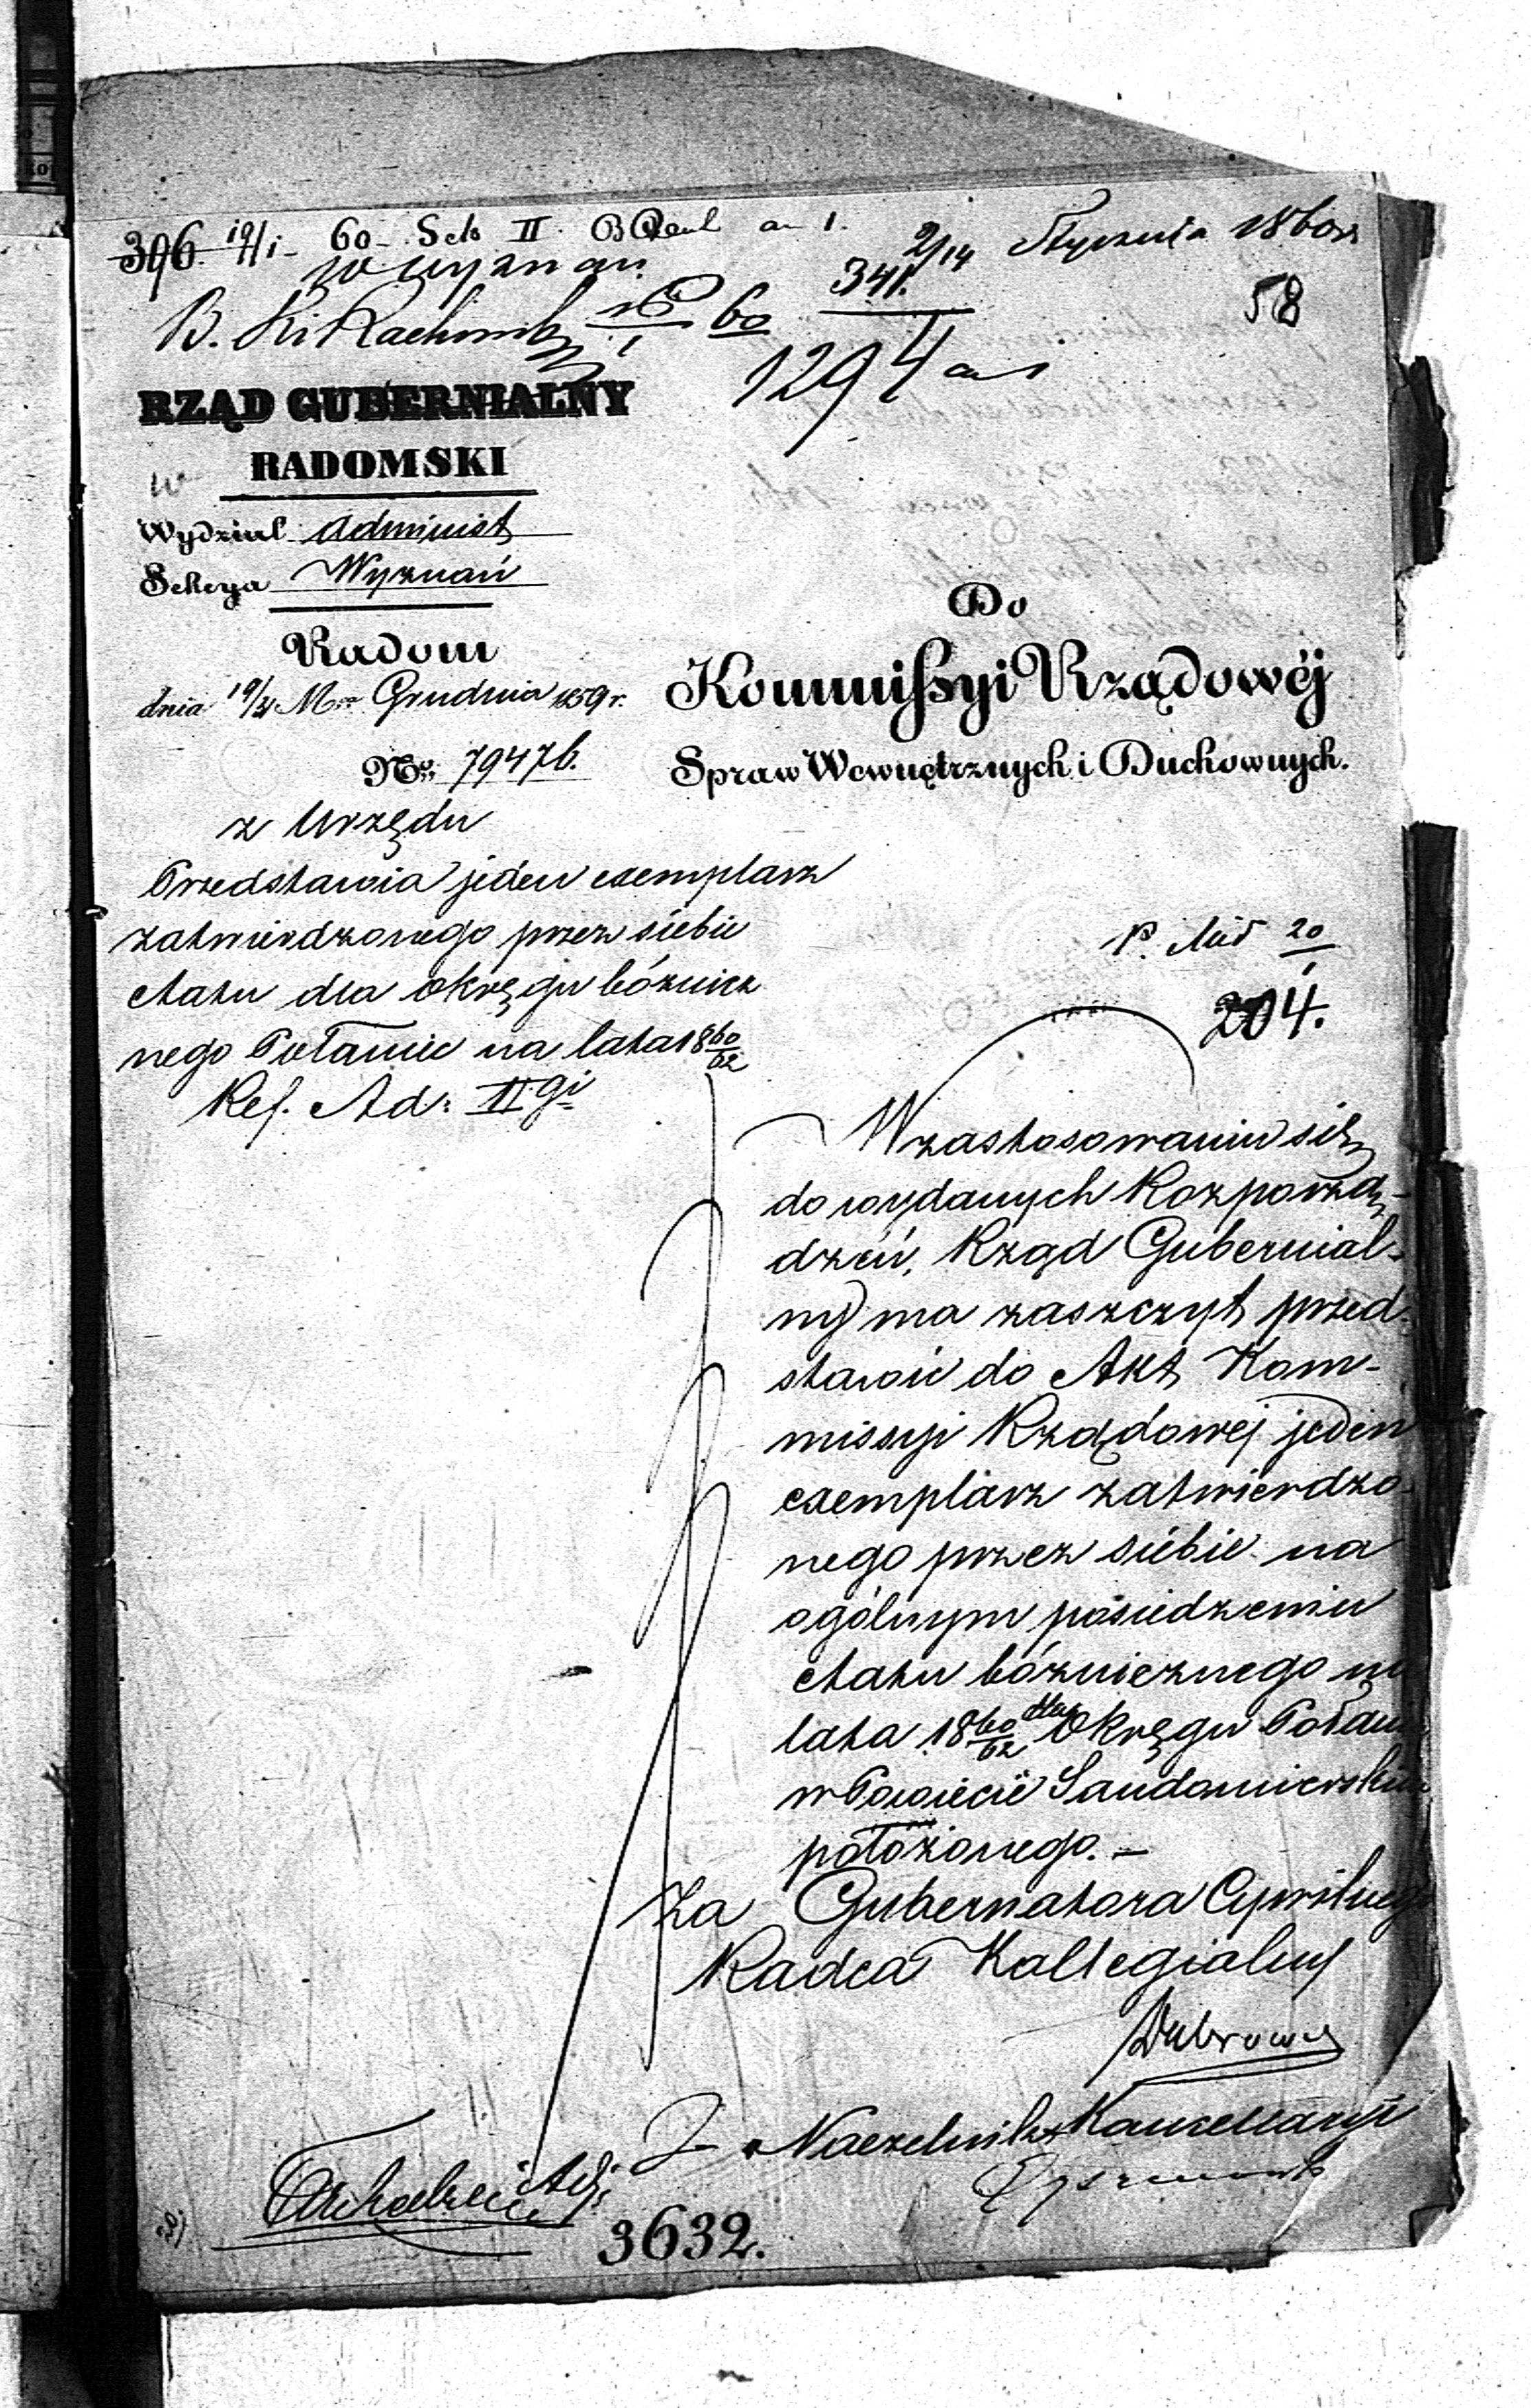 396. 19/1 60 Sek II
2/14 Stycznia 1860 r
341.
58
60
1294
RZĄD GUBERNIALNY
RADOMSKI
Wydział Administ
Sekcya Wyznań
Radom
dnia 19/31 Mca Grudnia 1859 r.
No. 79476.
Do
Kommissyi Rządowéj
Spraw Wewnętrznych i Duchownych.
z Urzędu
Przedstawia jeden exemplarz
zatwierdzonego przez siebie
etatu dla okręgu bóżnicz
nego Połaniec na lata 1860/62
Ref. Ad: II gi
20/1
204.
W zastosowaniu się
do wydanych Rozporzą-
dzeń, Rząd Gubernial-
ny ma zaszczyt przed-
stawić do Akt Kom-
missyi Rządowej jeden
exemplarz zatwierdzo-
nego przez siebie na
ogólnym posiedzeniu
etatu bóżnicznego na
lata 1860/62 dla Okręgu Połan
w Powiecie Sandomierskim
położonego. —
Za Gubernatora Cywilnego
Radca Kollegialny
Naczelnik Kancellaryi
3632.